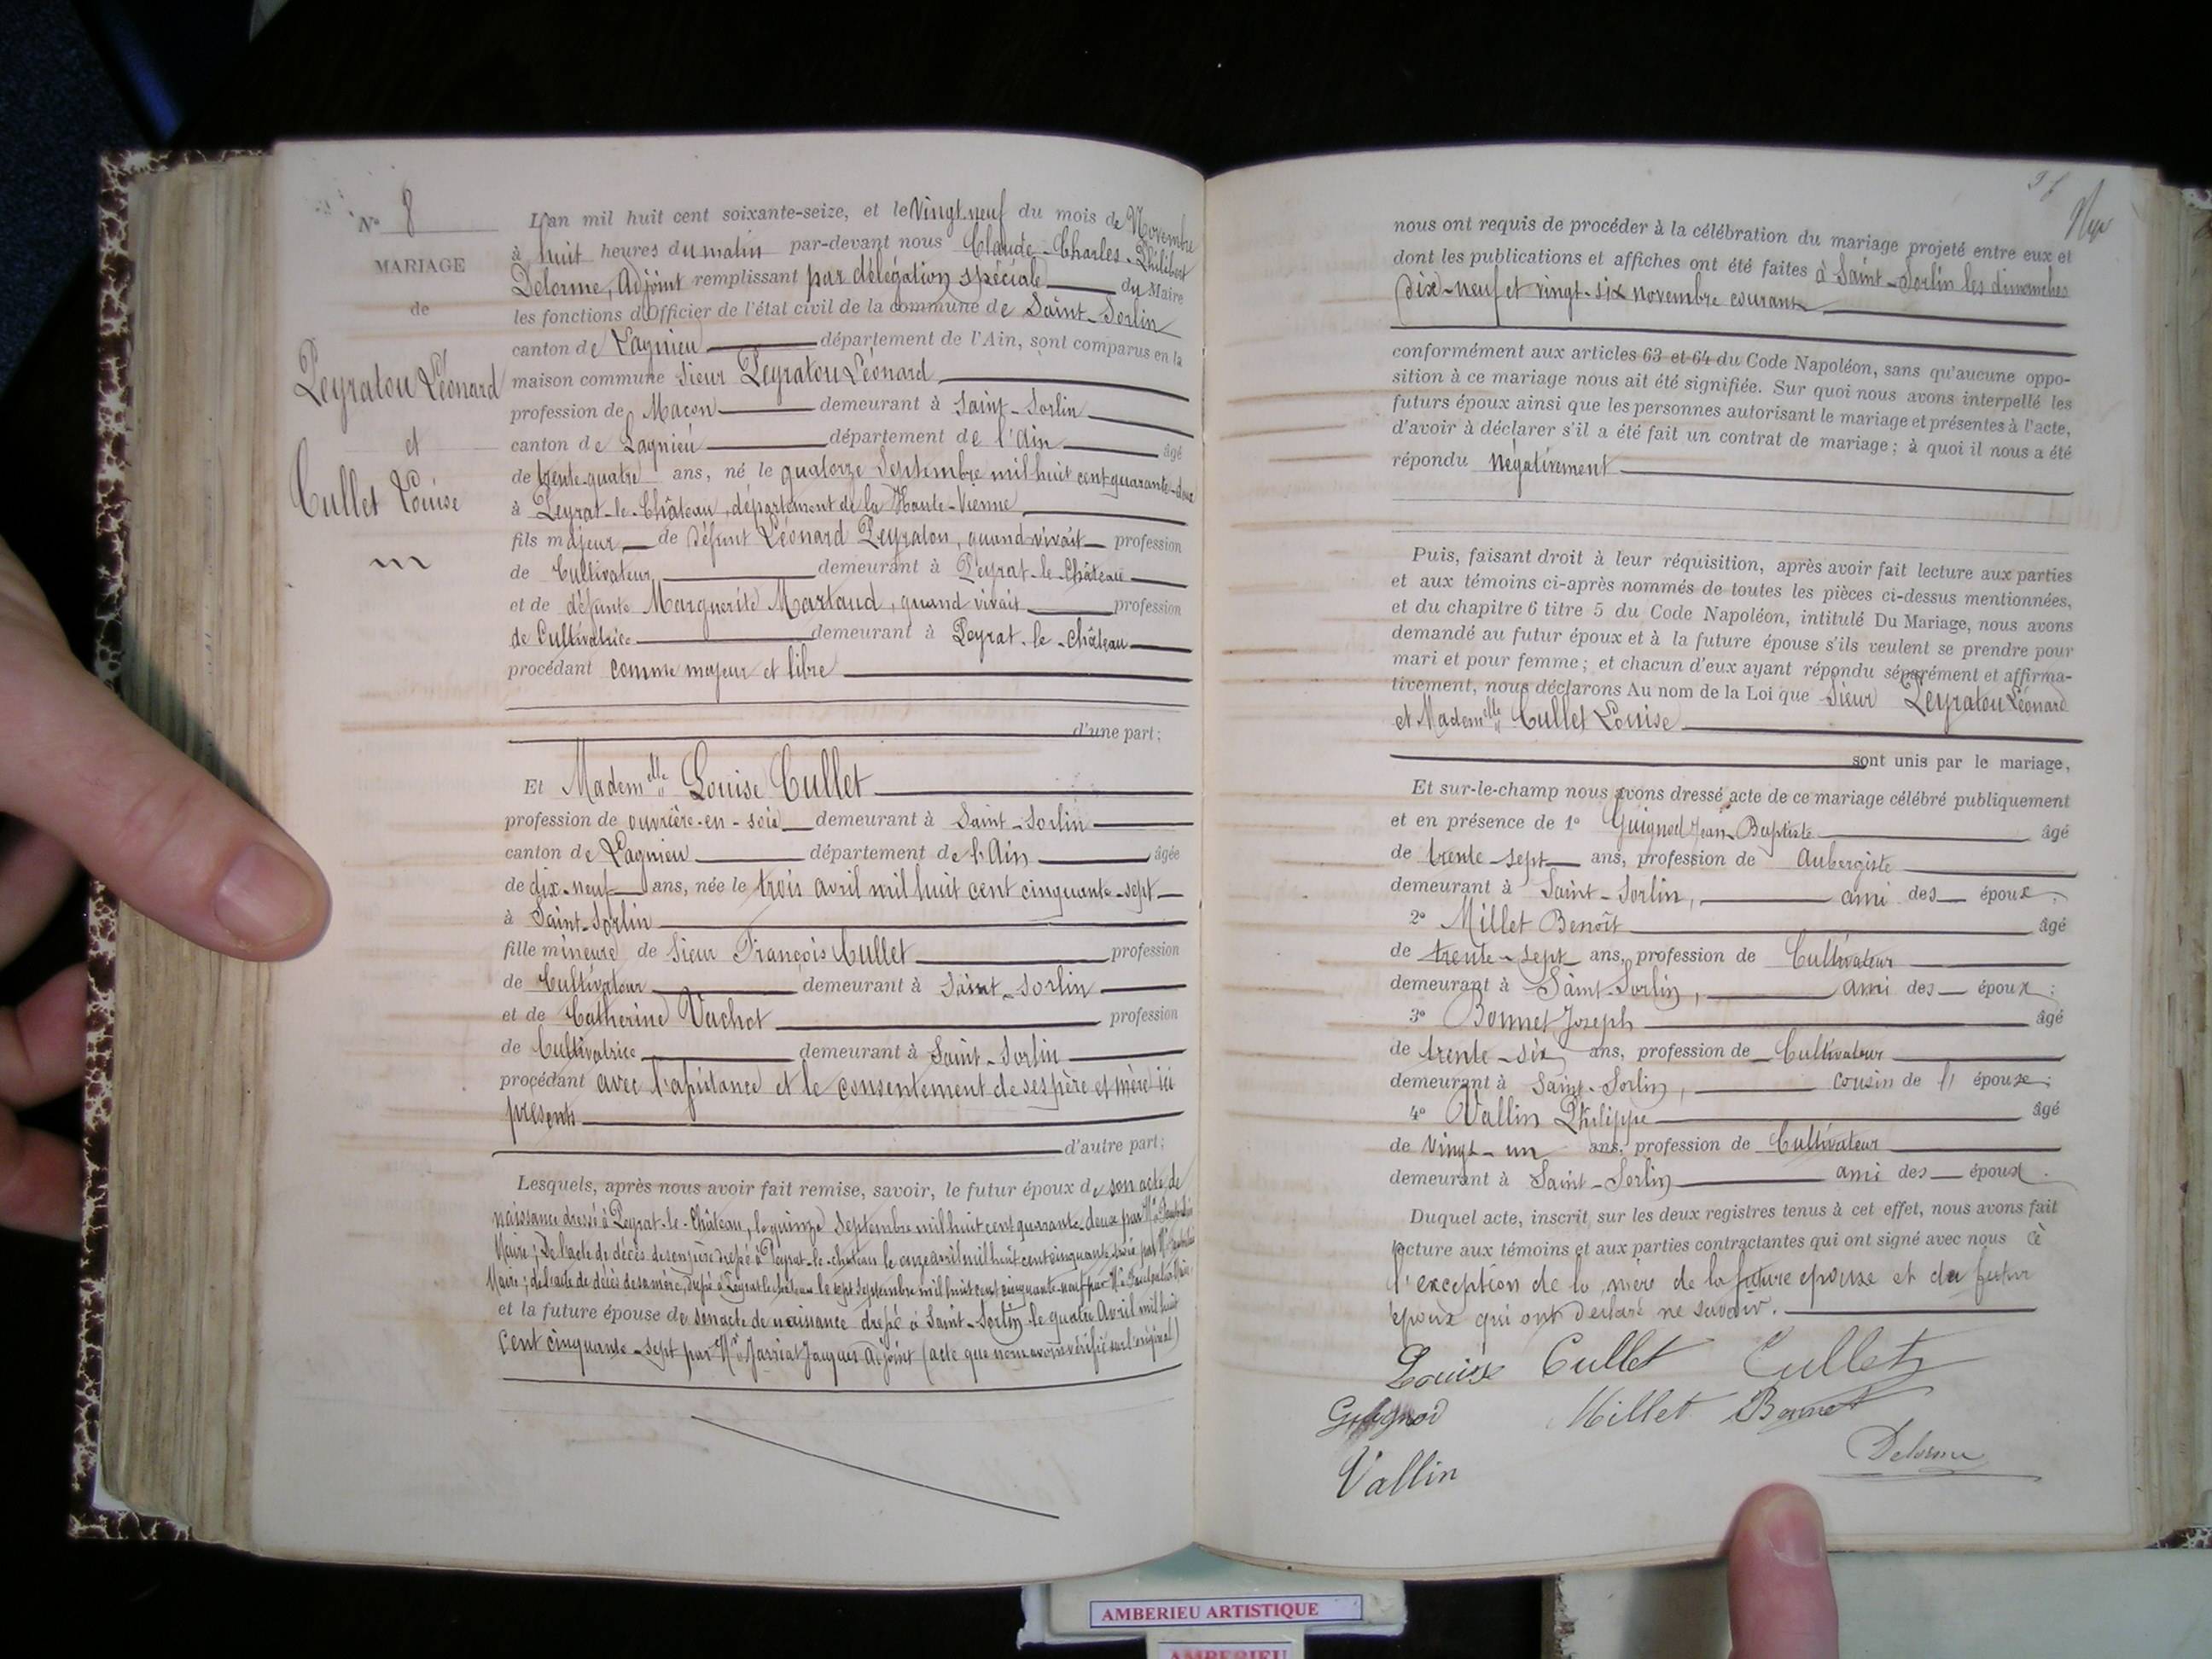 N° 8
MARIAGE
de
Peyratou Léonard
et
Cullet Louise
L'an mil huit cent soixante-seize, et le Vingt neuf du mois de Novembre
à huit heures du matin par-devant nous Claude-Charles-Philibert
Delorme, Adjoint remplissant par délégation spéciale du Maire
les fonctions d'Officier de l'état civil de la commune de Saint-Sorlin
canton de Lagnieu département de l'Ain, sont comparus en la
maison commune Sieur Peyratou Léonard
profession de Maçon demeurant à Saint-Sorlin
canton de Lagnieu département de l'Ain âgé
de trente-quatre ans, né le quatorze Septembre mil huit cent quarante-deux
à Peyrat-le-Château, département de la Haute-Vienne
fils majeur de défunt Léonard Peyratou, quand vivait profession
de Cultivateur demeurant à Peyrat-le-Château
et de défunte Marguerite Martaud, quand vivait profession
de Cultivatrice demeurant à Peyrat-le-Château
procédant comme majeur et libre
d'une part;
Et Madem elle Louise Cullet
profession de ouvrière-en-soie demeurant à Saint-Sorlin
canton de Lagnieu département de l'Ain âgée
de dix-neuf ans, née le trois avril mil huit cent cinquante-sept
à Saint-Sorlin
fille mineure de Sieur François Cullet profession
de Cultivateur demeurant à Saint-Sorlin
et de Catherine Vachot profession
de Cultivatrice demeurant à Saint-Sorlin
procédant avec l'assistance et le consentement de ses père et mère ici
présents
d'autre part;
Lesquels, après nous avoir fait remise, savoir, le futur époux de son acte de
naissance dressé à Peyrat-le-Château, le quinze Septembre mil huit cent quarante-deux par Mr
Maire; De l'acte de décès de son père dressé à Peyrat-le-château le onze avril mil huit cent cinquante par Mr
Maire; de l'acte de décès de sa mère, dressé à Peyrat le château le sept septembre mil huit cent cinquante-neuf par Mr
et la future épouse de son acte de naissance dressé à Saint-Sorlin le quatre Avril mil huit
cent cinquante-sept par Mr Jarriat Jacques Adjoint (acte que nous avons vérifié sur l'original)
nous ont requis de procéder à la célébration du mariage projeté entre eux et
dont les publications et affiches ont été faites à Saint-Sorlin les dimanches
dix-neuf et vingt-six novembre courant
conformément aux articles 63 et 64 du Code Napoléon, sans qu'aucune oppo-
sition à ce mariage nous ait été signifiée. Sur quoi nous avons interpellé les
futurs époux ainsi que les personnes autorisant le mariage et présentes à l'acte,
d'avoir à déclarer s'il a été fait un contrat de mariage; à quoi il nous a été
répondu négativement
Puis, faisant droit à leur réquisition, après avoir fait lecture aux parties
et aux témoins ci-après nommés de toutes les pièces ci-dessus mentionnées,
et du chapitre 6 titre 5 du Code Napoléon, intitulé Du Mariage, nous avons
demandé au futur époux et à la future épouse s'ils veulent se prendre pour
mari et pour femme; et chacun d'eux ayant répondu séparément et affirma-
tivement, nous déclarons Au nom de la Loi que Sieur Peyratou Léonard
et Madem elle Cullet Louise
sont unis par le mariage,
Et sur-le-champ nous avons dressé acte de ce mariage célébré publiquement
et en présence de 1° Guignod Jean-Baptiste âgé
de trente-sept ans, profession de Aubergiste
demeurant à Saint-Sorlin, ami des époux;
2° Millet Benoît âgé
de trente-sept ans, profession de Cultivateur
demeurant à Saint-Sorlin, ami des époux;
3° Bonnet Joseph âgé
de trente-six ans, profession de Cultivateur
demeurant à Saint-Sorlin, cousin de l' épouse;
4° Vallin Philippe âgé
de vingt-un ans, profession de Cultivateur
demeurant à Saint-Sorlin ami des époux.
Duquel acte, inscrit sur les deux registres tenus à cet effet, nous avons fait
lecture aux témoins et aux parties contractantes qui ont signé avec nous à
l'exception de la mère de la future épouse et du futur
époux qui ont déclaré ne savoir.
Louise Cullet Cullet
Guignod Millet Bonnet
Vallin Delorme
AMBERIEU ARTISTIQUE
AMBERIEU